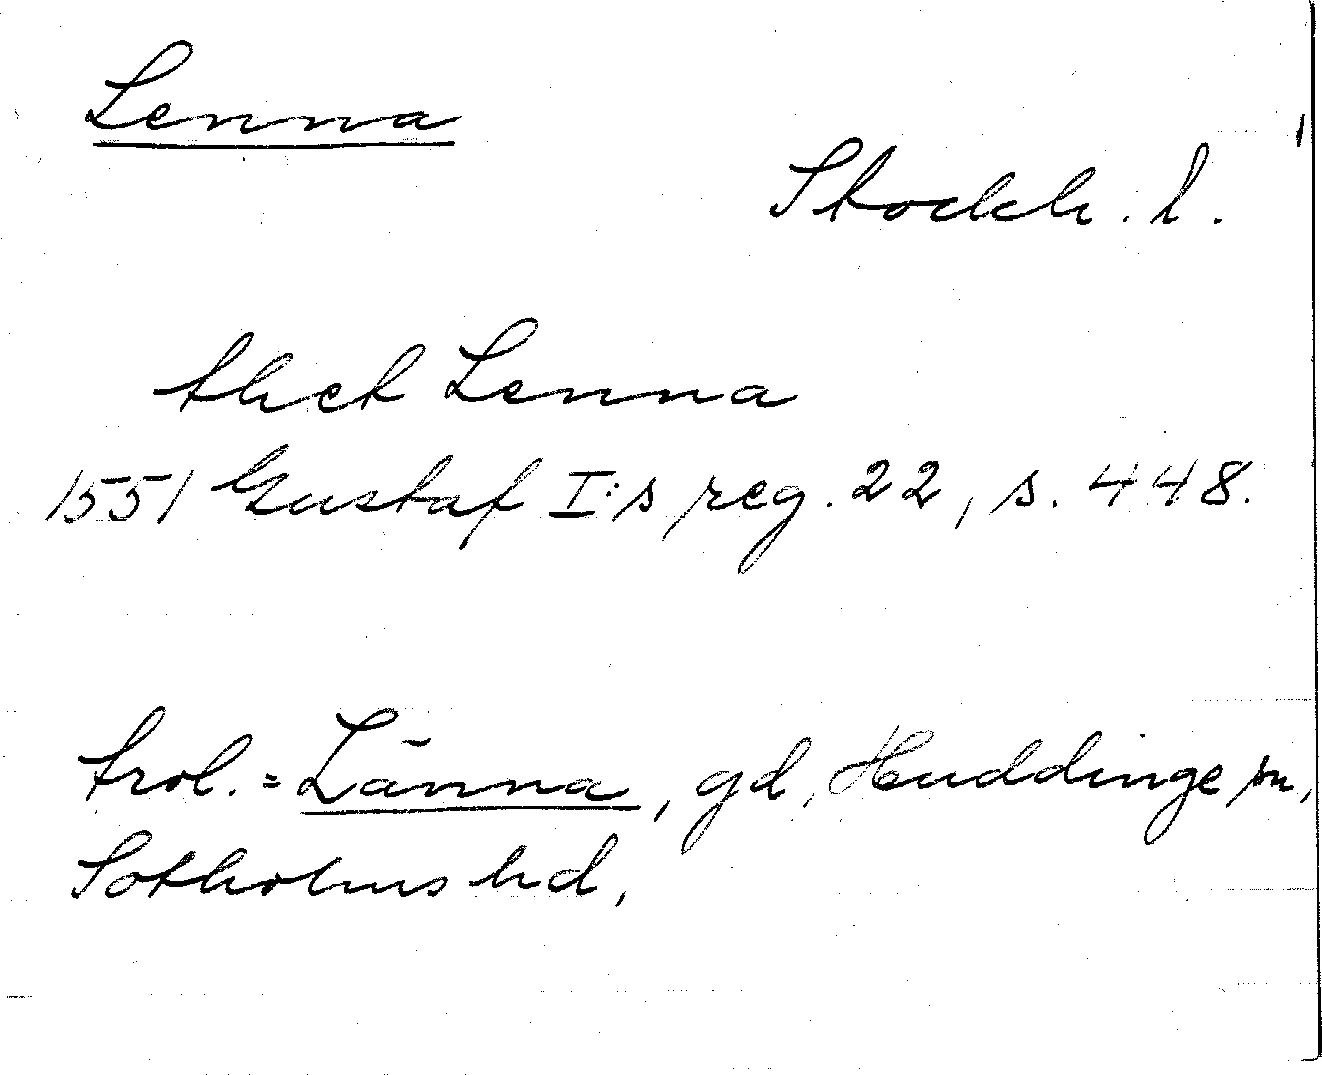 Lenna
Stockh. l.
thet Lenna
1551 Gustaf I:s reg. 22, s. 448.
trol. = Länna, gd, Huddinge sn,
Sotholms hd,